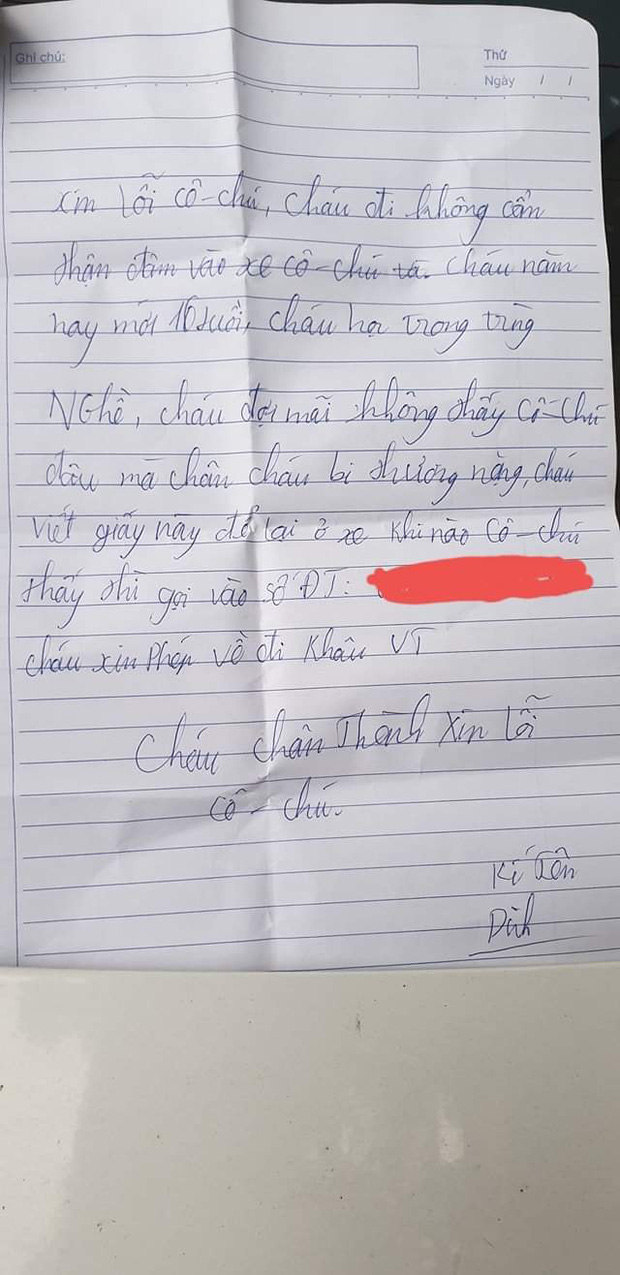 Ghi chú:
Thứ
Ngày / /
xin lỗi cô-chú, cháu đi không cẩn
thận đâm vào xe cô-chú và. cháu năm
nay mới 16 tuổi, cháu họ trong trừng
Nghề, cháu đợi mãi không thấy cô-chú
đâu mà chân cháu bị thương nặng, cháu
viết giấy này để lại ở xe khi nào cô-chú
thấy thì gọi vào số ĐT:
cháu xin phép về đi khâu VT
Cháu chân Thành xin lỗi
cô-chú.
Kí Tên